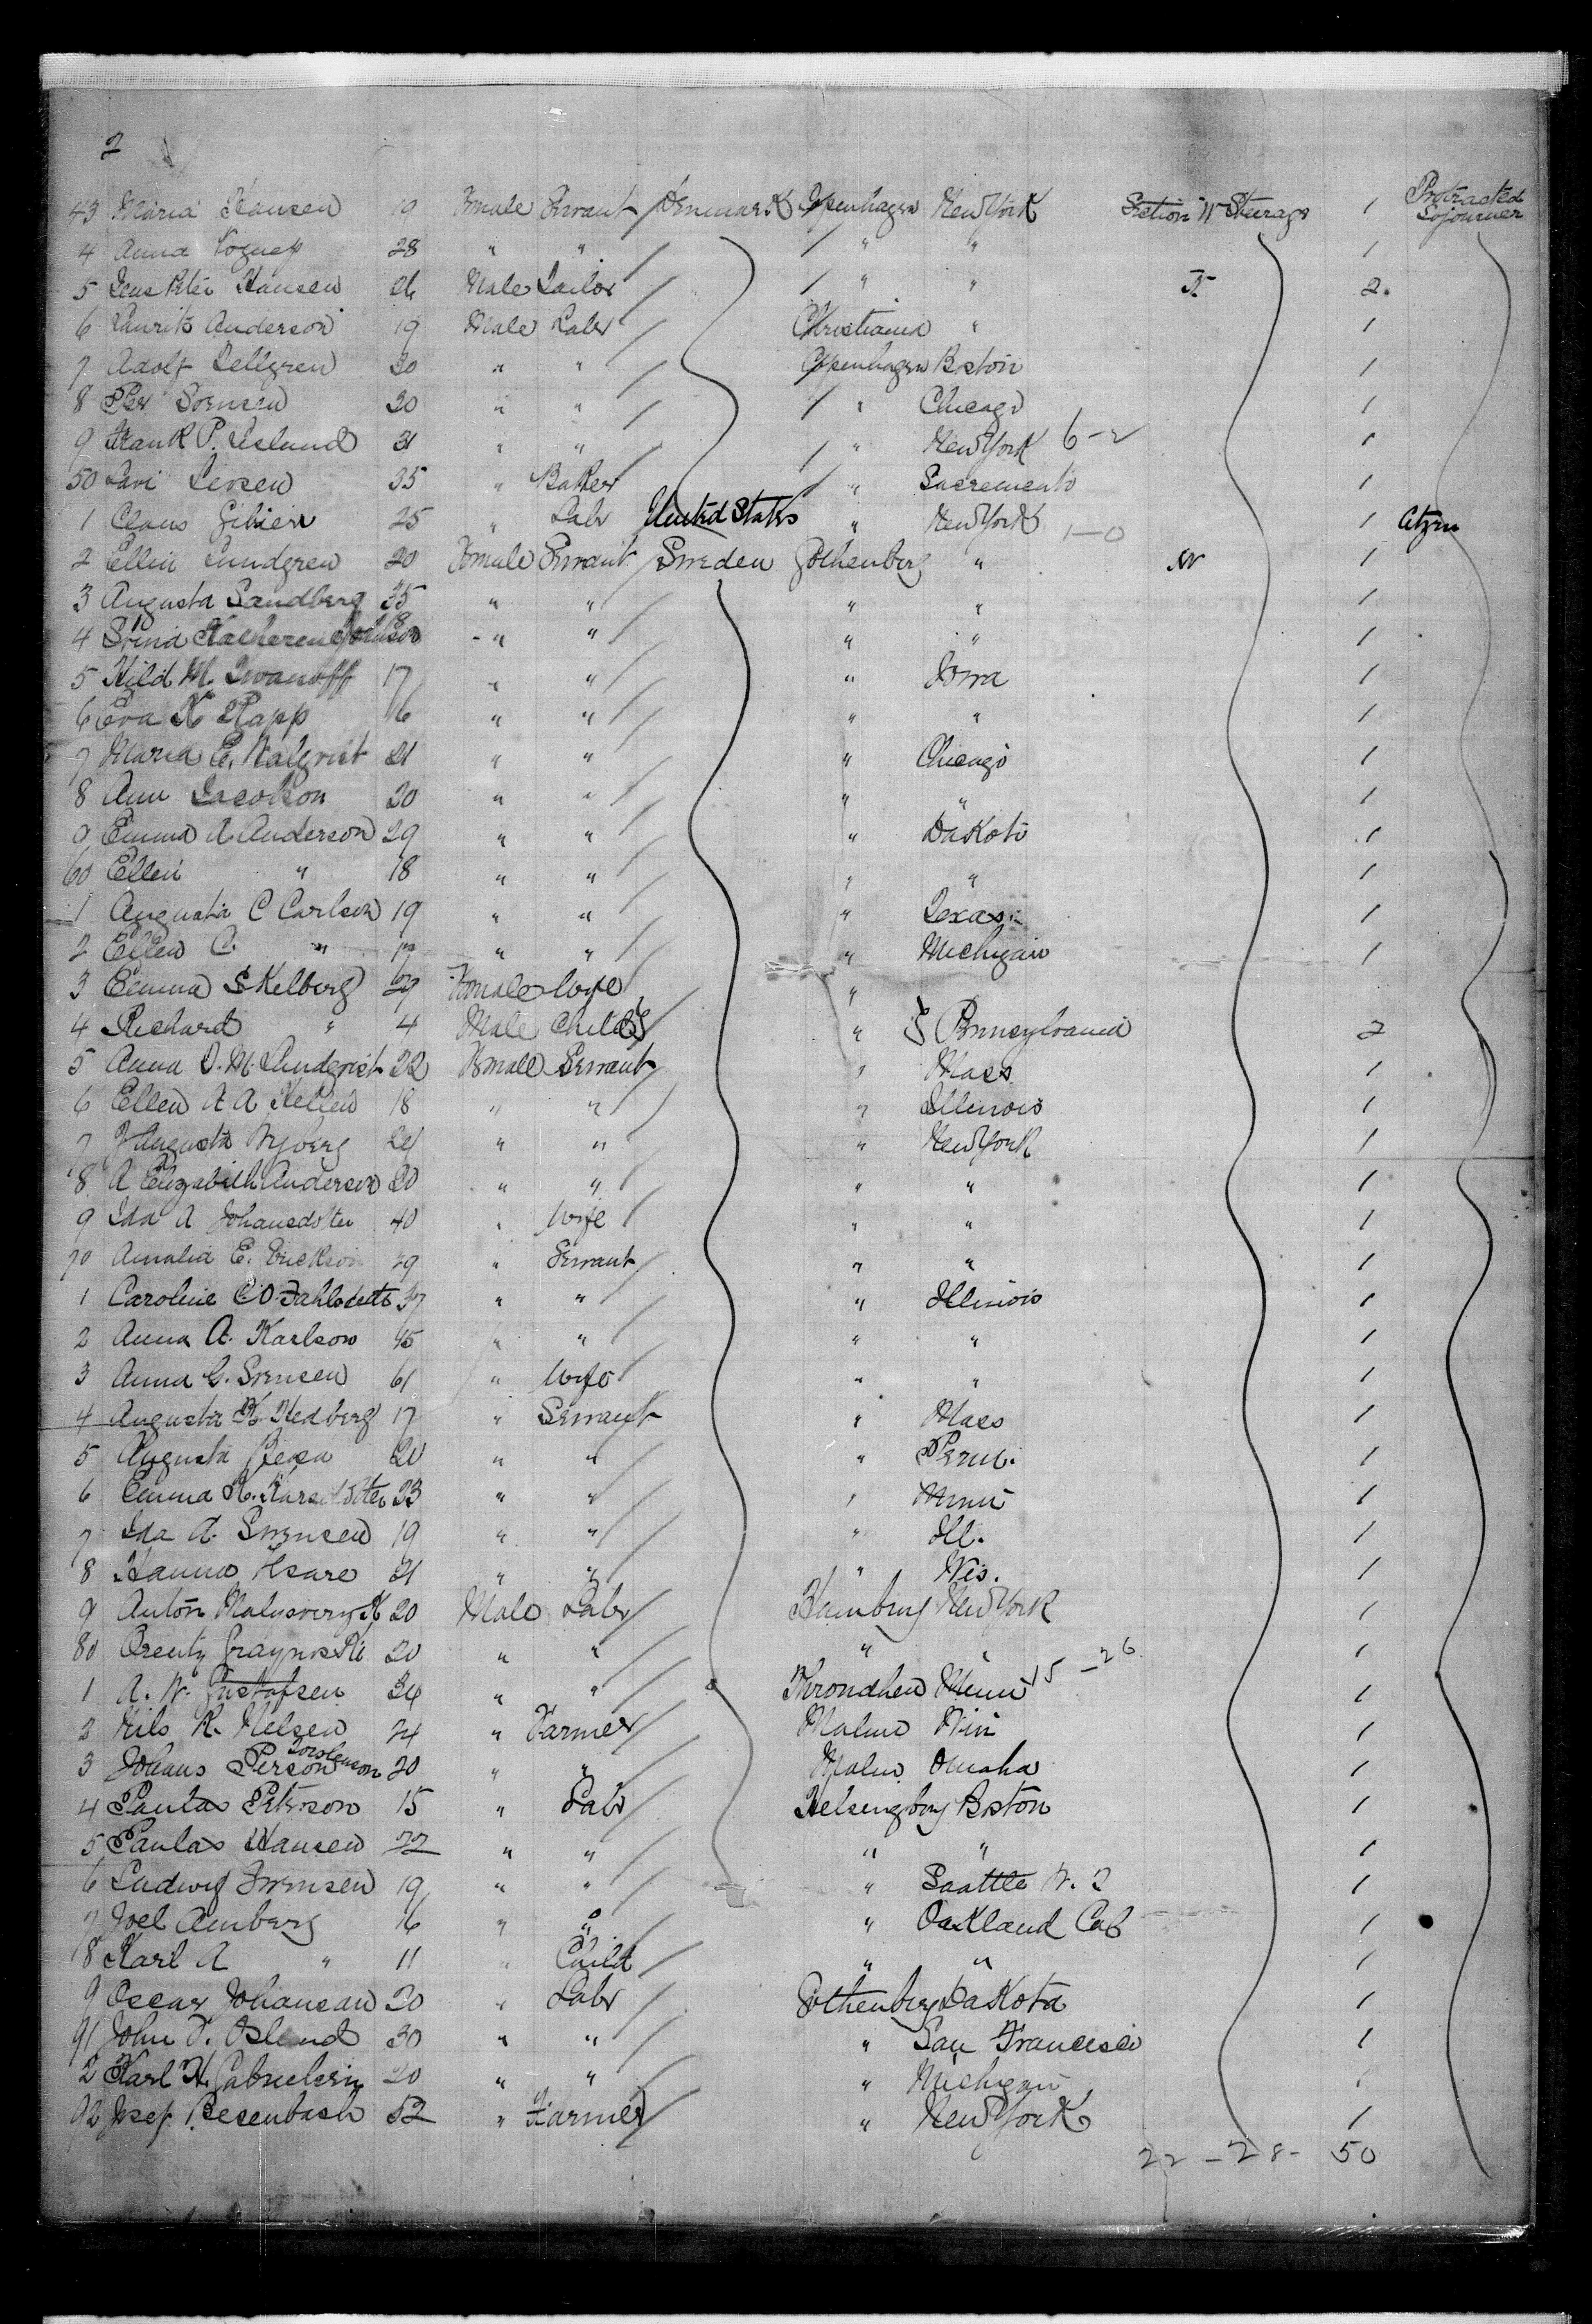 2
43 Maria Hansen 19 Female Servant Denmark Copenhagen New York Section W Steerage 1 Protracted Sojourner
4 Anna 28 " " " " 1
5 Jens Peter Hansen 26 Male Tailor " " 2
6 Laurits Anderson 19 Male Labr Christiania " 1
7 Adolf Sellgren 30 " " Copenhagen Boston 1
8 Per Sorensen 30 " " " Chicago 1
9 Frank P. 31 " " " New York 6-2 1
50 Larsen 35 " Baker " Sacremento 1
1 Claus 25 " Labr United States " New York 1-0 1 Citzen
2 Ellin Lundgren 20 Female Servant Sweden Gothenberg " W 1
3 Augusta Sandberg 35 " " " " 1
4 Katherena Johnson 18 " " " " 1
5 Hild M. Iwanoff 17 " " " Iowa 1
6 Eva K Rapp 16 " " " " 1
7 Maria E. Walqvist 21 " " " Chicago 1
8 Ann Jacobson 20 " " " " 1
9 Emma A Anderson 29 " " " Dakota 1
60 Ellen " 18 " " " " 1
1 Augusta C Carlson 19 " " " Texas 1
2 Ellen C. " 17 " " " Michigan 1
3 Emma Skelberg 29 Female Wife "
4 Richard " 4 Male Child " Pennsylvania 2
5 Anna D. M. Lundqvist 22 Female Servant " Mass 1
6 Ellen A A 18 " " " Illinois 1
7 J Augusta Nyberg 24 " " " New York 1
8 A Elizabeth Anderson 20 " " " " 1
9 Ida A Johansdotter 40 " Wife " " 1
70 Amalia E. Erickson 29 " Servant " " 1
1 Caroline C. D. 37 " " " Illinois 1
2 Anna A. Karlson 45 " " " " 1
3 Anna G. Svensen 61 " Wife " " 1
4 Augusta K. Hedberg 17 " Servant " Mass 1
5 Augusta 20 " " " 1
6 Emma 23 " " " Minn 1
7 Ida A. Svensen 19 " " " Ill. 1
8 Hanna 21 " " " Wis. 1
9 Anton 20 Male Labr Hamburg New York 1
80 20 " " " " 1
1 A. W. Gustafsen 34 " " Throndhen Minn 15-26 1
2 Nils R. Nelsen 24 " Farmer Malmo 1
3 Johans Person 20 " " Malmo Omaha 1
4 Paulas Peterson 15 " Labr Helsingborg Boston 1
5 Paulas Hansen 22 " " " " 1
6 Ludwig Svensen 19 " " " Seattle W. T 1
7 Joel Amberg 16 " " " Oakland Cal 1
8 Karl A " 11 " Child " " 1
9 Oscar Johansan 20 " Labr Gothenberg Dakota 1
91 John F. Oslund 30 " " " San Francisco 1
2 Karl H. 20 " " " Michigan 1
92 Josef 52 " Farmer " New York 1
22 - 28 - 50